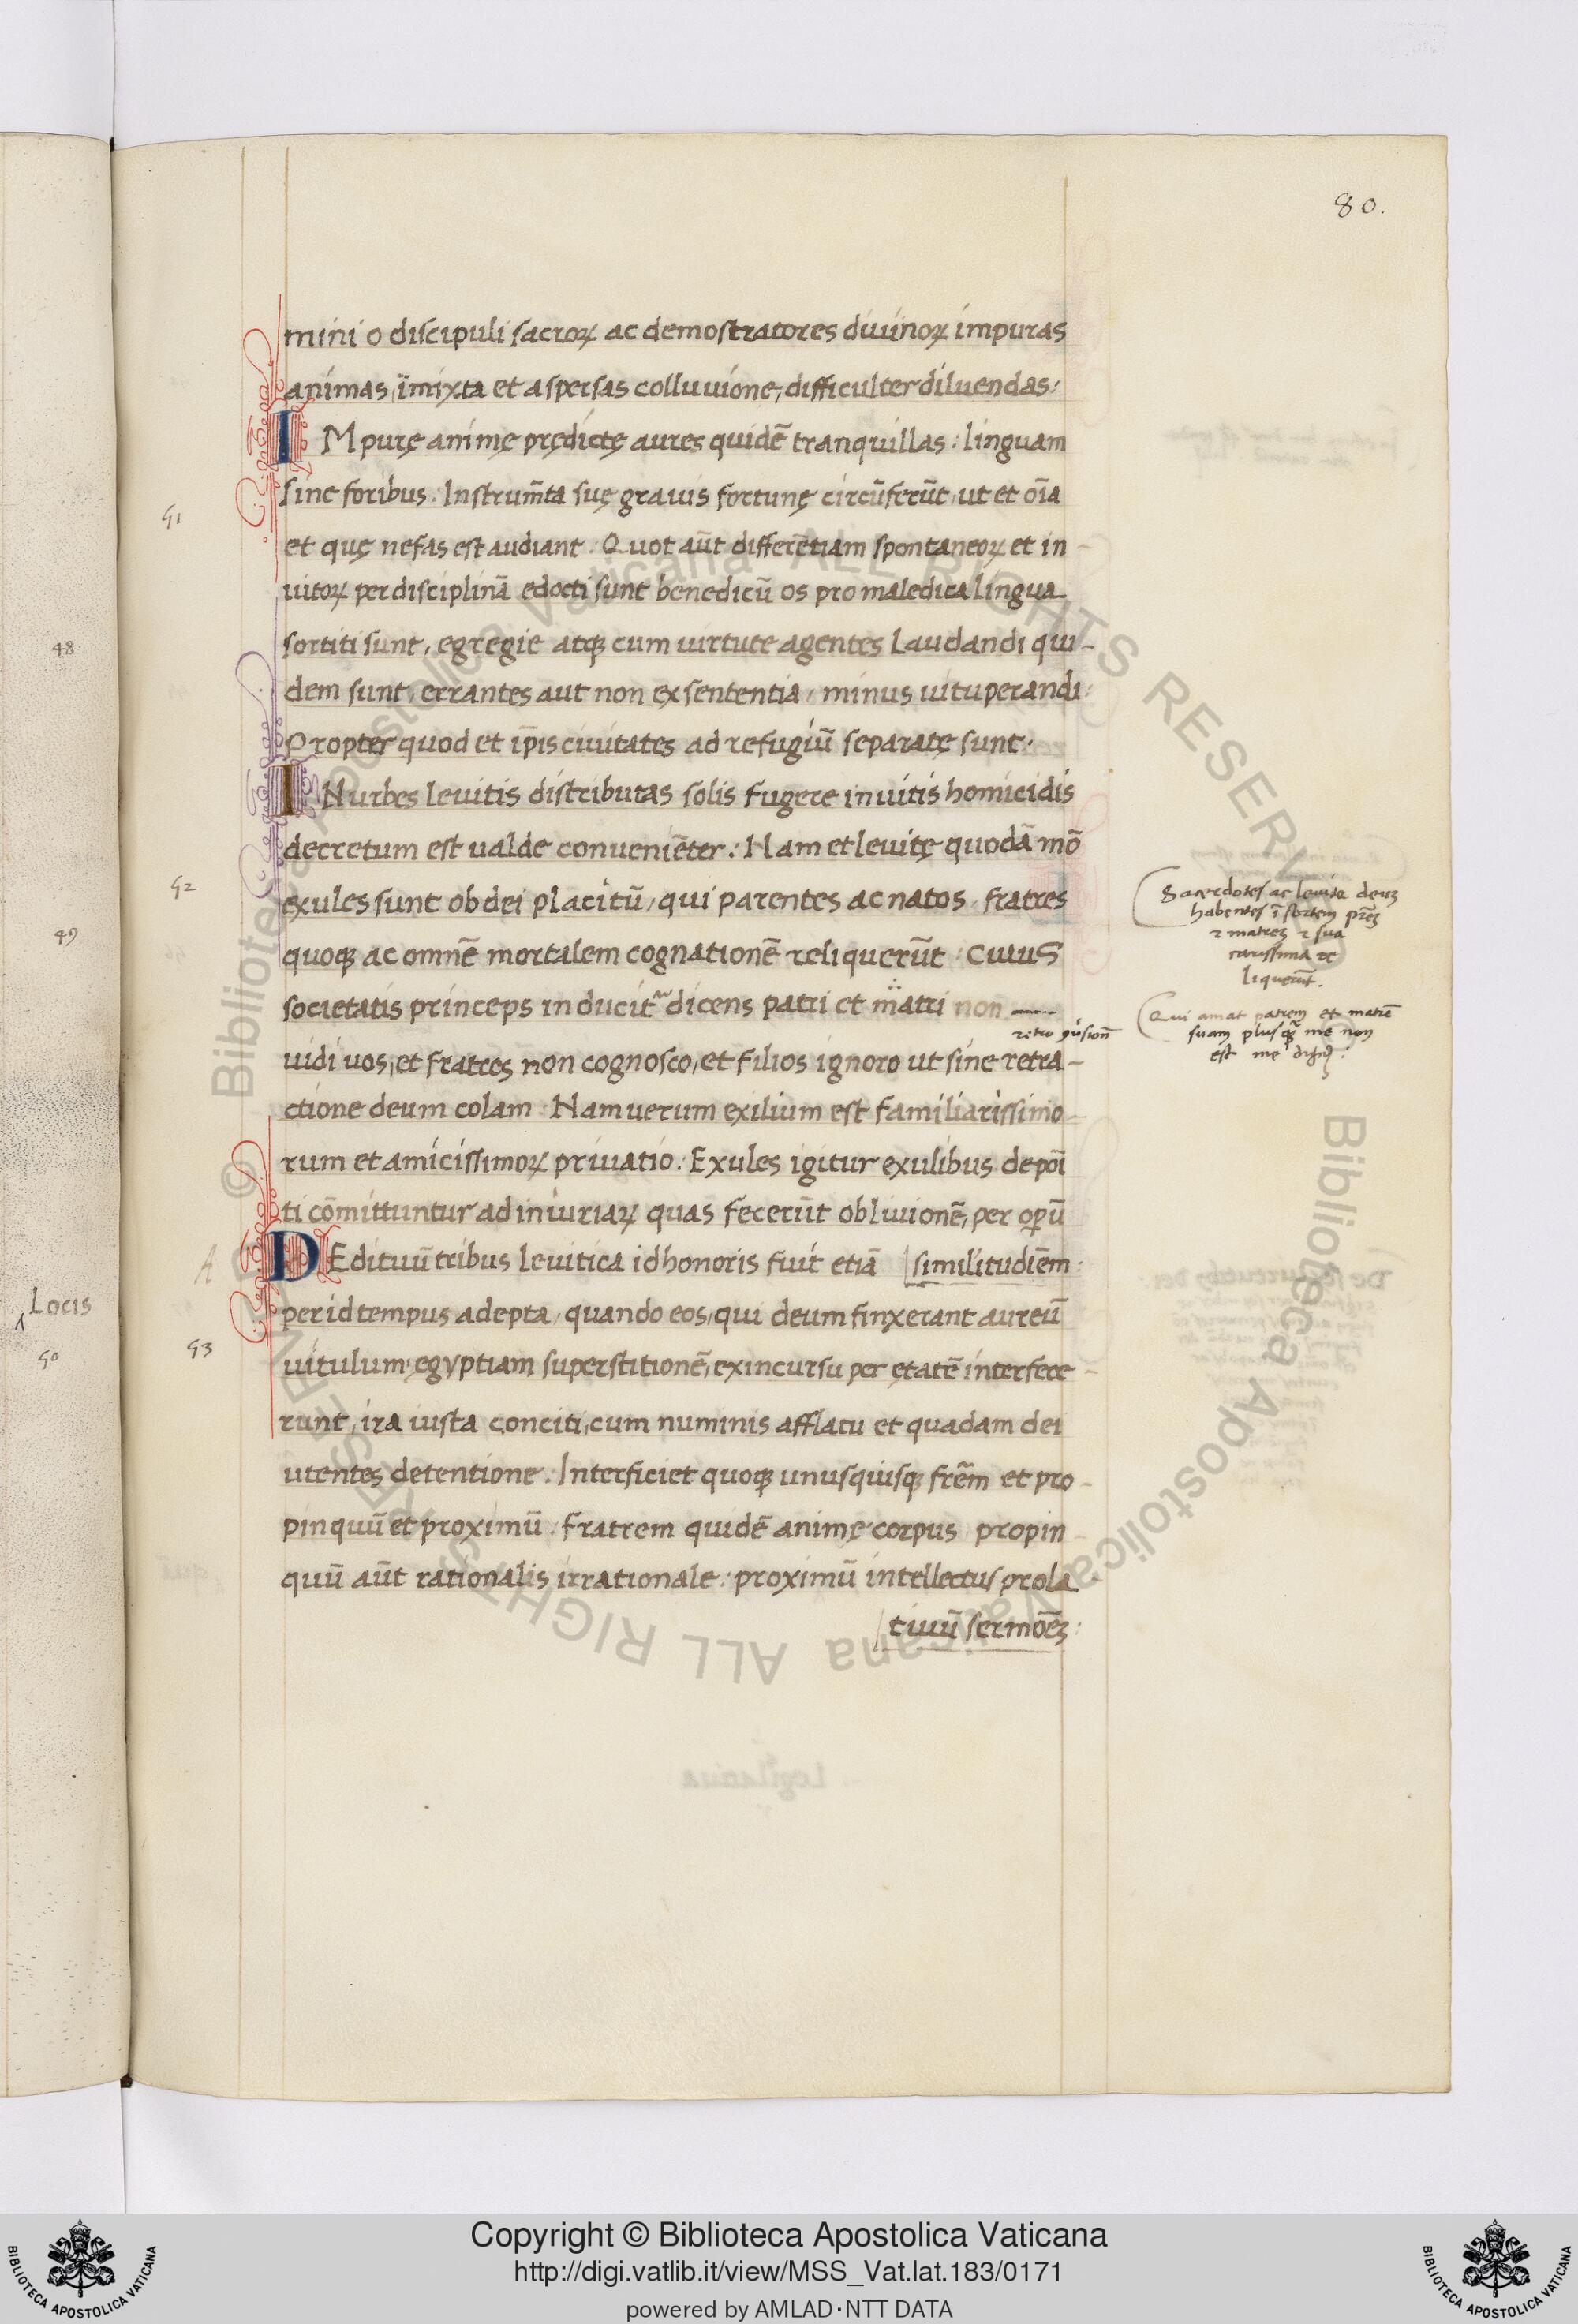 80.
mini o discipuli sacroꝝ ac demostratores diuinoꝝ impuras
animas, īmixta et aspersas colluuione, difficulter diluendas:
IMpurę animę prędictę aures quidē tranquillas: linguam
sine foribus. Instrum̄ta suę grauis fortunę circūferūt, ut et oīa
et quę nefas est audiant. Quot aūt differētiam spontaneoꝝ et in-
uitoꝝ per disciplinā edocti sunt benedicū os pro maledica lingua
sortiti sunt, egregie atqꝫ cum uirtute agentes Laudandi qui-
dem sunt, errantes aut non ex sententia, minus uituperandi:
Propter quod et ip̄is ciuitates ad refugiū separatę sunt:
IN urbes leuitis distributas solis fugere inuitis homicidis
decretum est ualde conueniēter: Nam et leuitę quodā mō
exules sunt ob dei placitū, qui parentes ac natos, fratres
quoqꝫ ac omnē mortalem cognationē reliquerūt. Cuius
societatis princeps inducit' dicens patri et matri non
uidi uos, et fratres non cognosco, et filios ignoro ut sine retra-
ctione deum colam: Nam uerum exilium est familiarissimo-
rum et amicissimoꝝ priuatio: Exules igitur exulibus depoī
ti cōmittuntur ad iniuriaꝝ quas fecerūt obliuionē, per oꝑū
DEdituū tribus leuitica id honoris fuit etiā similitudiēm:
per id tempus adepta, quando eos, qui deum finxerant aureū
uitulum, egyptiam superstitionē, ex incursu per ętatē interfece-
runt, ira iusta conciti, cum numinis afflatu et quadam dei
utentes detentione. Interficiet quoqꝫ unusquisqꝫ frēm et pro-
pinquū et proximū: fratrem quidē animę corpus propin-
quū aūt rationalis irrationale: proximū intellectus prola
tiuū sermōeꝫ:
Sacerdotes ac leuite deuꝫ
habentes ī sortem pr̄eꝫ
⁊ matreꝫ ⁊ sua
carissima re
liquerūt.
Qui amat patrem et matrē
suam plusqꝫ me non
est me dignꝰ:
51
52
A
53
48
49
Locis
50
Copyright © Biblioteca Apostolica Vaticana
http://digi.vatlib.it/view/MSS_Vat.lat.183/0171
powered by AMLAD·NTT DATA
BIBLIOTECA APOSTOLICA VATICANA
BIBLIOTECA APOSTOLICA VATICANA
© Biblioteca Apostolica Vaticana ALL RIGHTS RESERVED
© Biblioteca Apostolica Vaticana ALL RIGHTS RESERVED